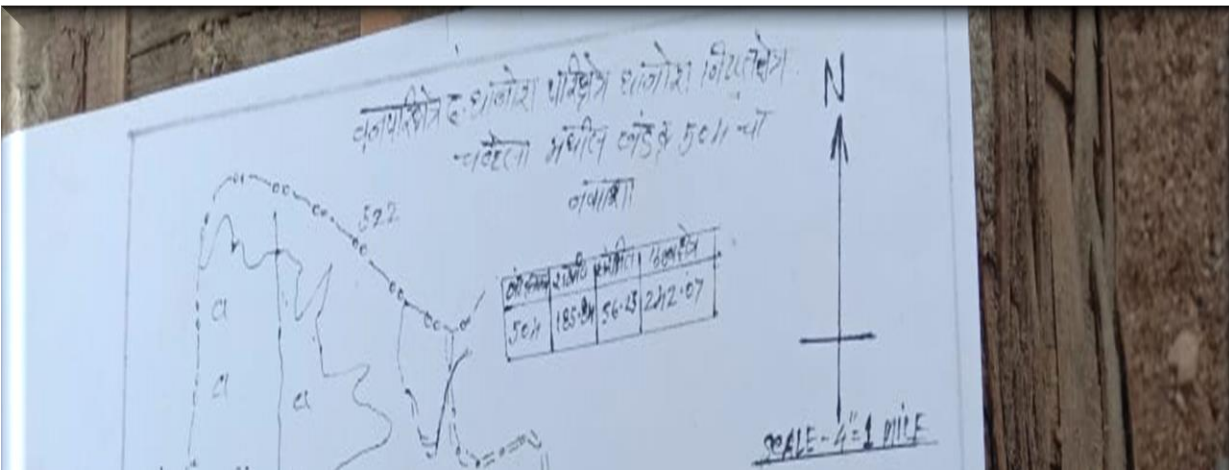 वनपरिक्षेत्र द. धानोरा परिक्षेत्र धानोरा नियतक्षेत्र
चव्हेला मधील खंड क्र 504 चा
नकाशा
N
522
राखीव संरक्षित
504 56.23 242.07
a
a
a
SCALE - 4"=1 MILE